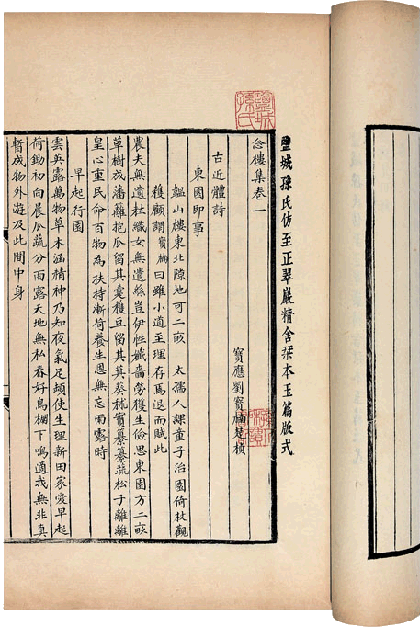 鹽城孫氏仿至正翠巖精舍槧本玉篇版式
鹽城孫氏
念樓集卷一
寶應劉寶楠楚楨
古近體詩
東園即事
山樓東北隙地可二畝 太孺人課童子治圃倚杖觀
穫顧謂寶楠曰雖小道至理存焉退而賦此
農夫無遺秉織女無遺絲豈伊性孅嗇勞獲生儉思東園方二畝
草樹成藩籬抱瓜留其蔓穫豆留其萁葵秫實纂纂蔬松子離離
皇心重民命百物為扶持斬芻養生恩無忘雨露時
早起行園
雲英露萬物草木涵精神乃知夜氣足頓使生理新田家愛早起
荷鋤初向晨瓜蔬分雨露天地無私春好鳥棚下鳴適我無非真
暫成物外遊及此閒中身